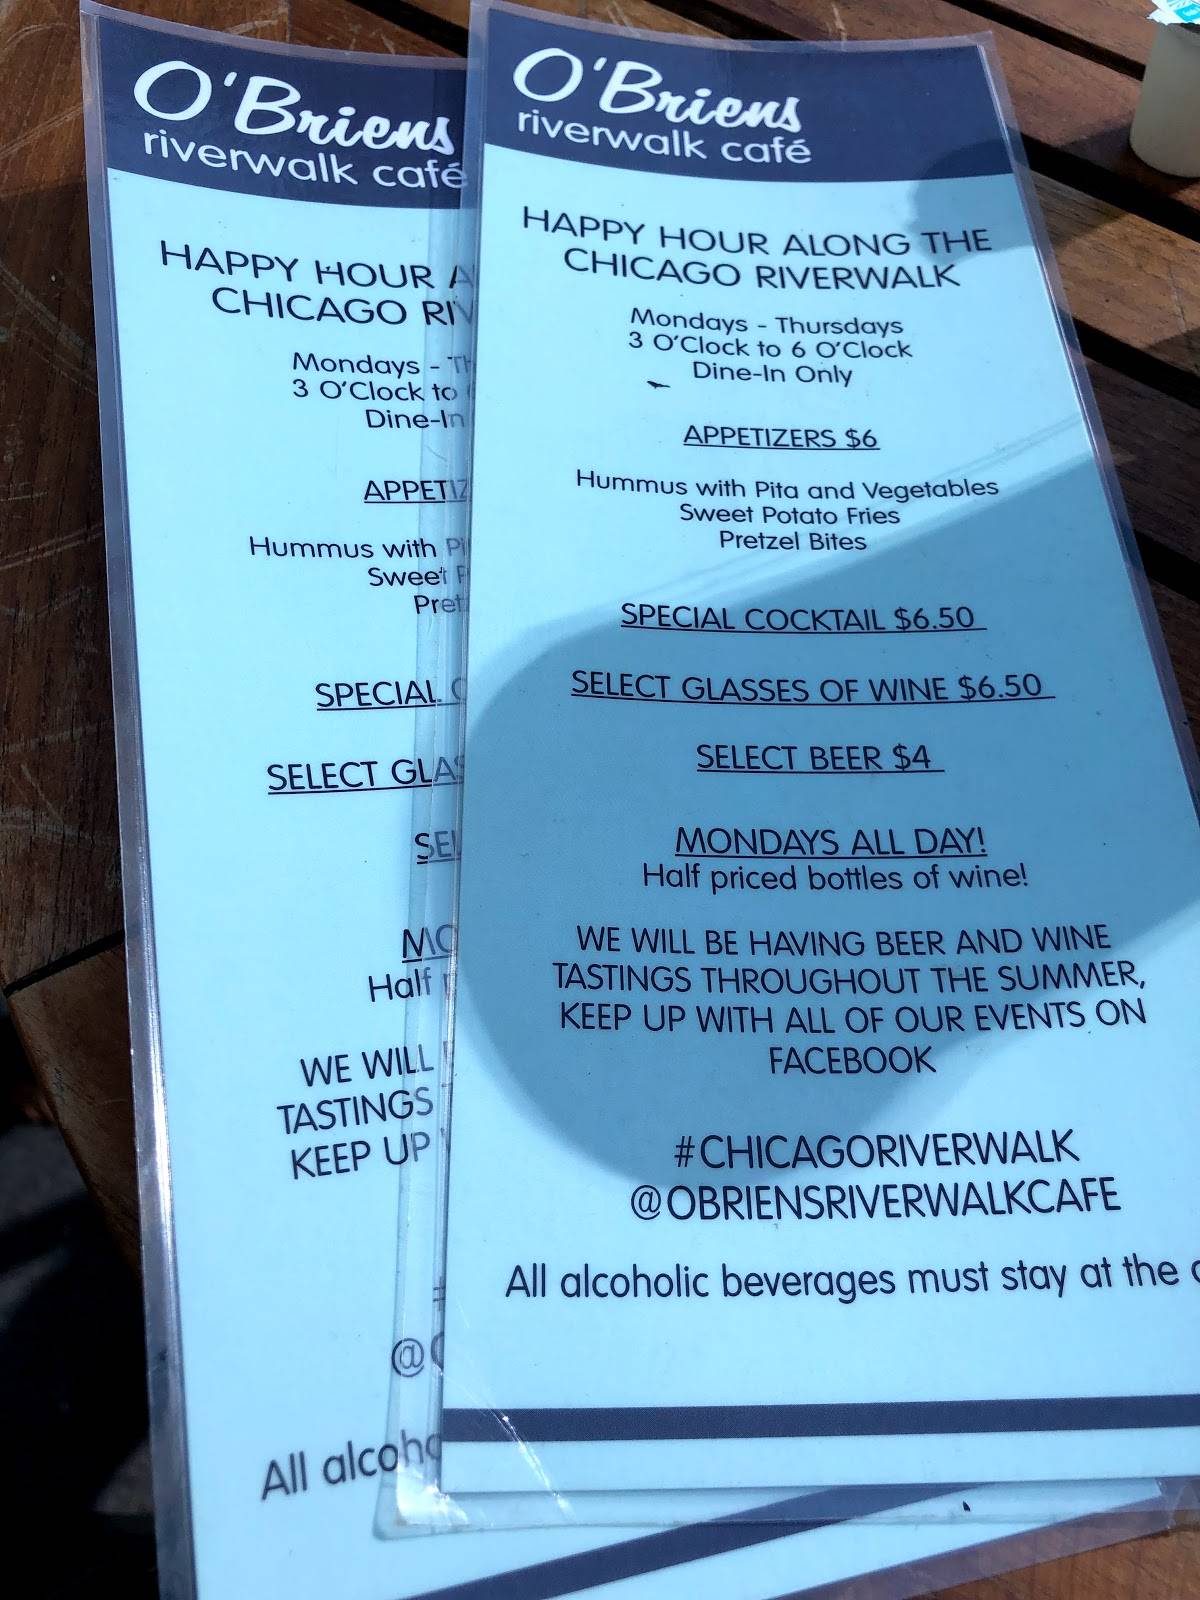 O'Briens
riverwalk café
HAPPY HOUR ALONG THE
CHICAGO RIVERWALK
Mondays - Thursdays
3 O'Clock to 6 O'Clock
Dine-In Only
APPETIZERS $6
Hummus with Pita and Vegetables
Sweet Potato Fries
Pretzel Bites
SPECIAL COCKTAIL $6.50
SELECT GLASSES OF WINE $6.50
SELECT BEER $4
MONDAYS ALL DAY!
Half priced bottles of wine!
WE WILL BE HAVING BEER AND WINE
TASTINGS THROUGHOUT THE SUMMER,
KEEP UP WITH ALL OF OUR EVENTS ON
FACEBOOK
#CHICAGORIVERWALK
@OBRIENSRIVERWALKCAFE
All alcoholic beverages must stay at the
O'Briens
riverwalk café
HAPPY HOUR
CHICAGO
Mondays -
3 O'Clock to
Dine-In
Hummus with
Sweet
SPECIAL
SELECT
Half
WE WILL
TASTINGS
KEEP UP
All